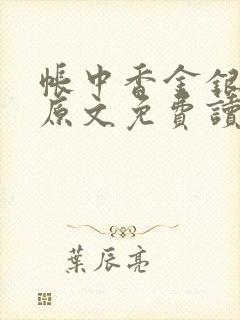 帳中香金銀
原文免費讀
葉辰亮